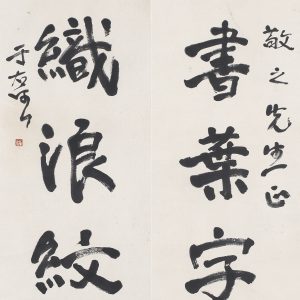 敬之先生正
書葉字
織浪紋
于右任